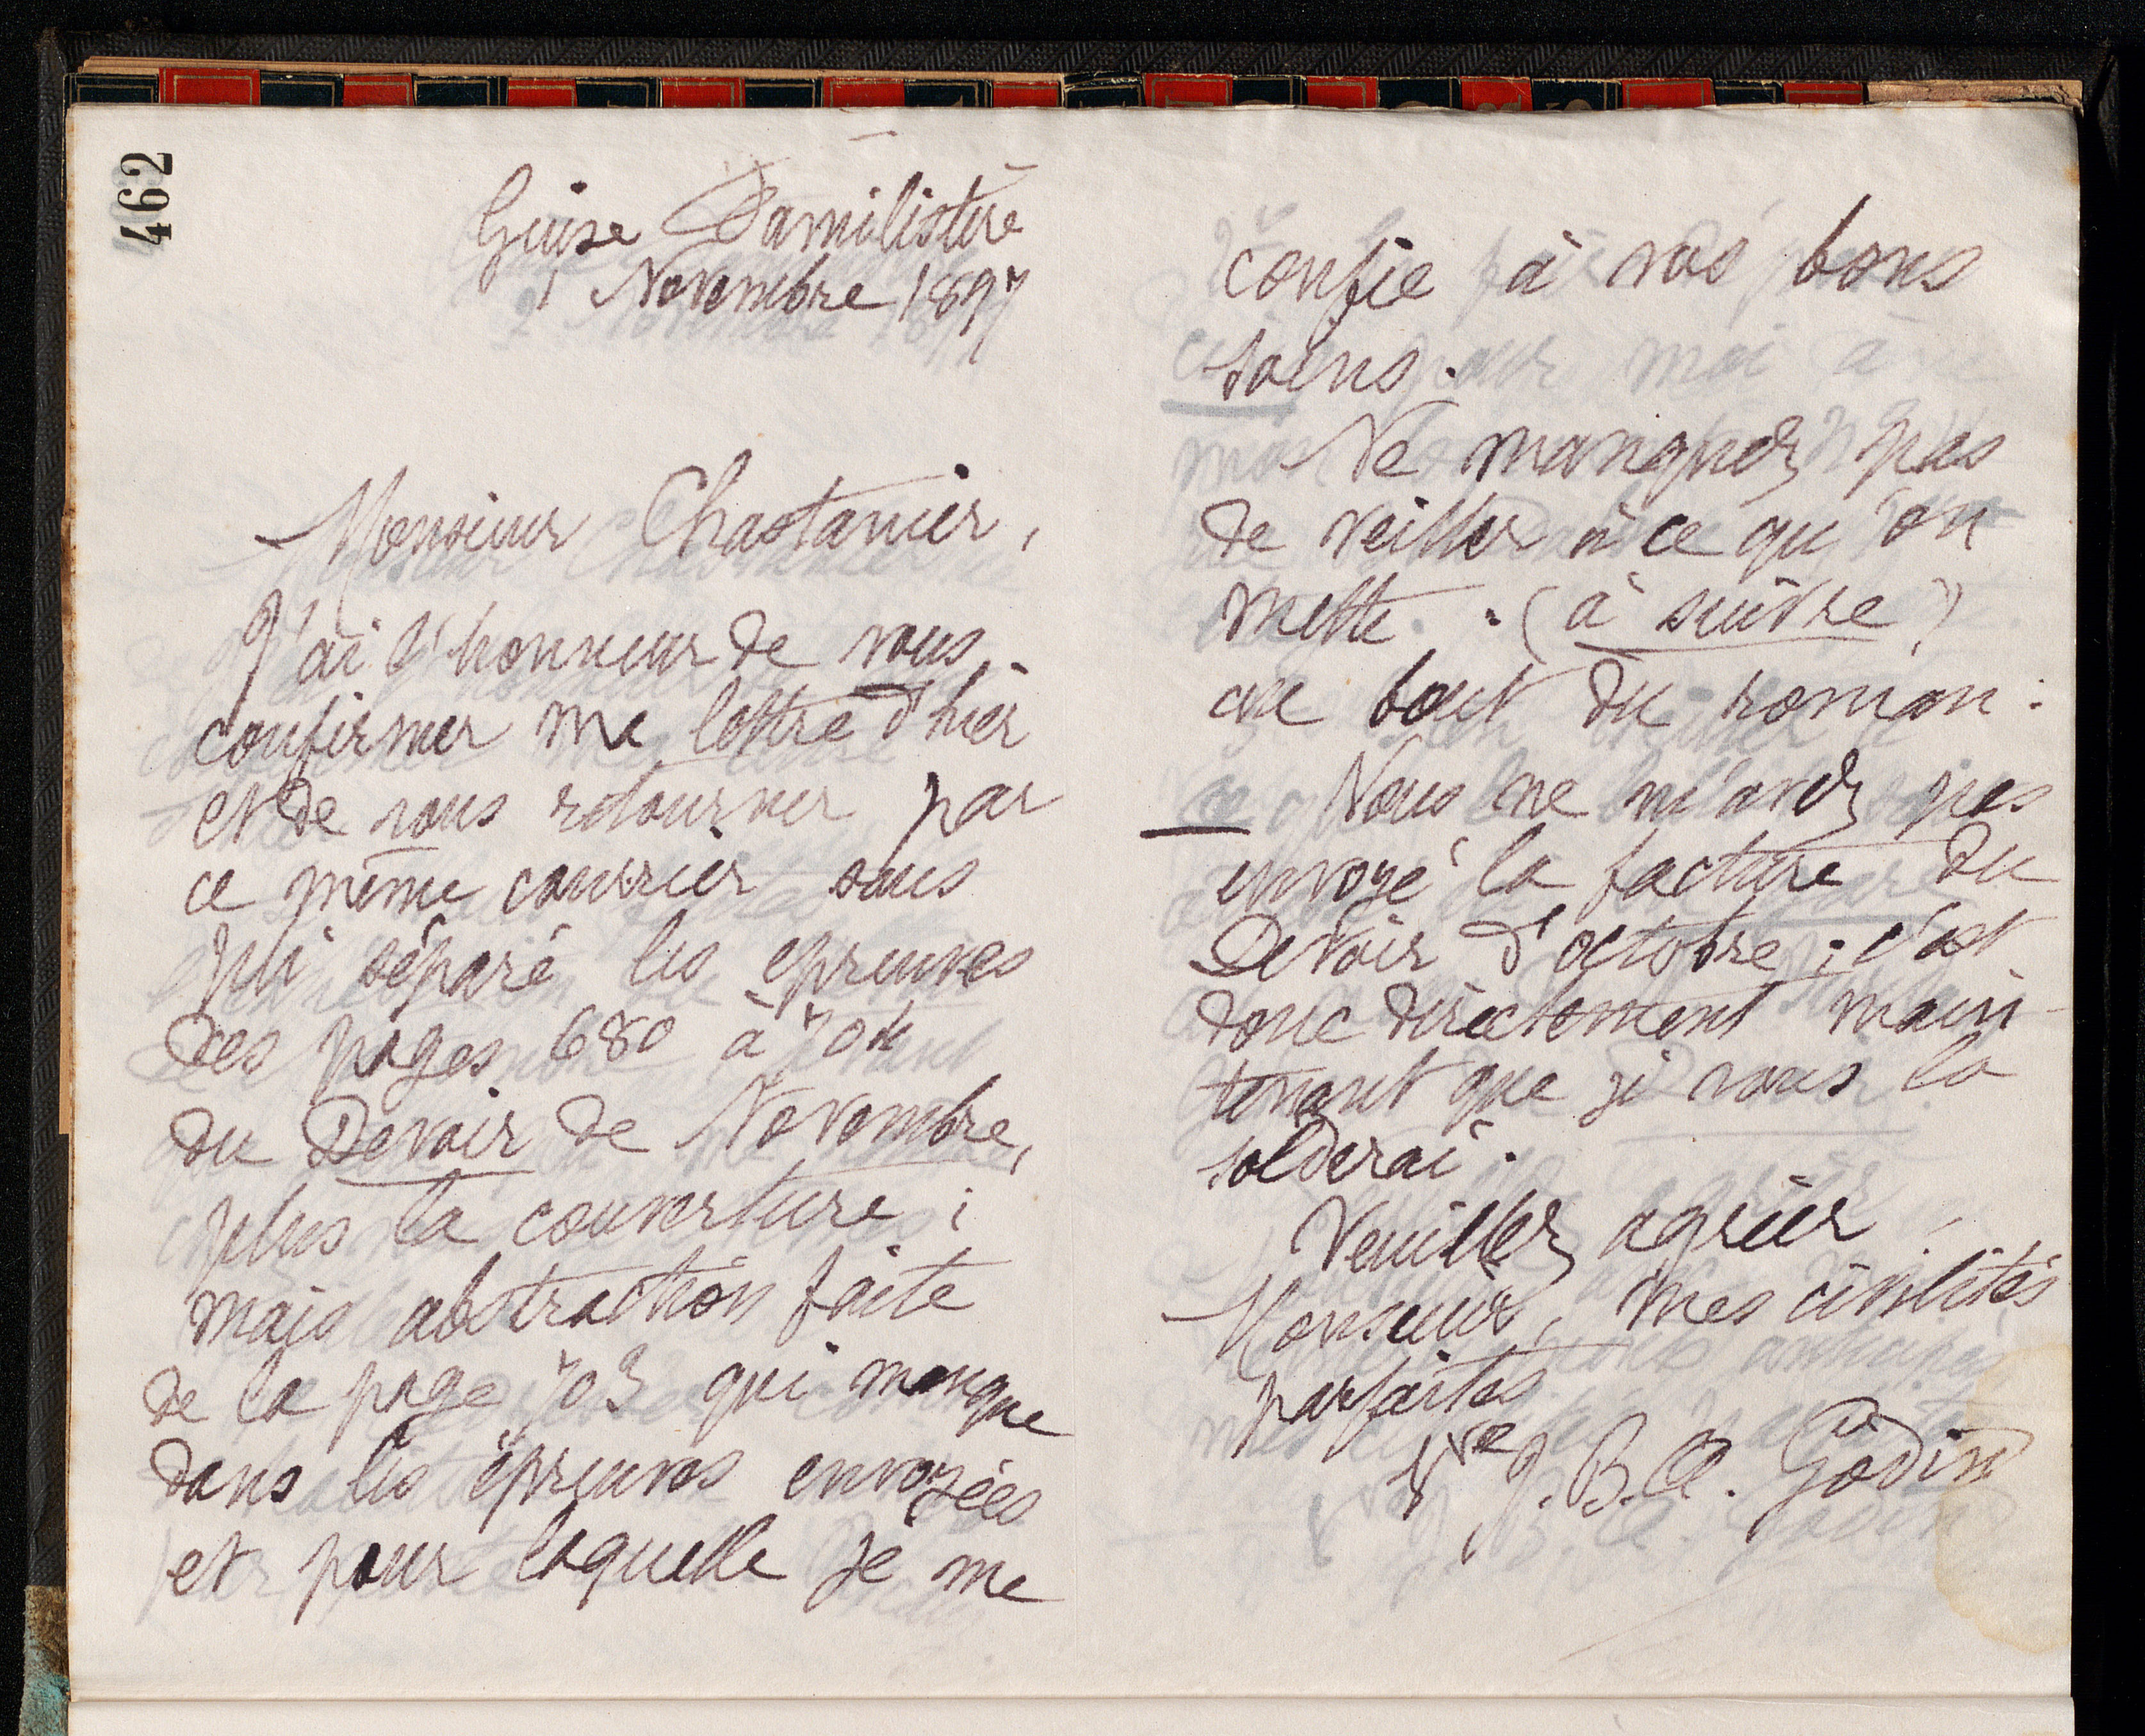 462
Guise Familistère
1 Novembre 1897
Monsieur Chastanier,
J'ai l'honneur de vous
confirmer ma lettre d'hier
et de vous retourner par
ce même courrier sous
pli séparé les épreuves
des pages 680 à 704
du Devoir de Novembre,
plus la couverture ;
mais abstraction faite
de la page 703 qui manque
dans les épreuves envoyées
et pour laquelle je me
confie à vos bons
soins.
Ne manquez pas
de veiller à ce qu'on
mette : (à suivre)
au bout du roman.
Vous ne m'avez pas
envoyé la facture du
Devoir d'octobre ; c'est
donc directement main-
tenant que je vous la
solderai.
Veuillez agréer
Monsieur, mes civilités
parfaites
Vve J. B. A. Godin